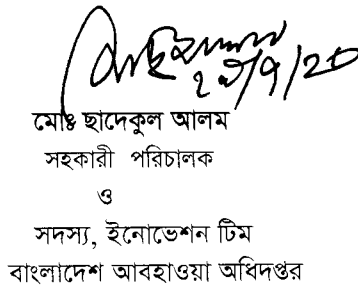 মোঃ ছাদেকুল আলম
সহকারী পরিচালক
ও
সদস্য, ইনোভেশন টিম
বাংলাদেশ আবহাওয়া অধিদপ্তর